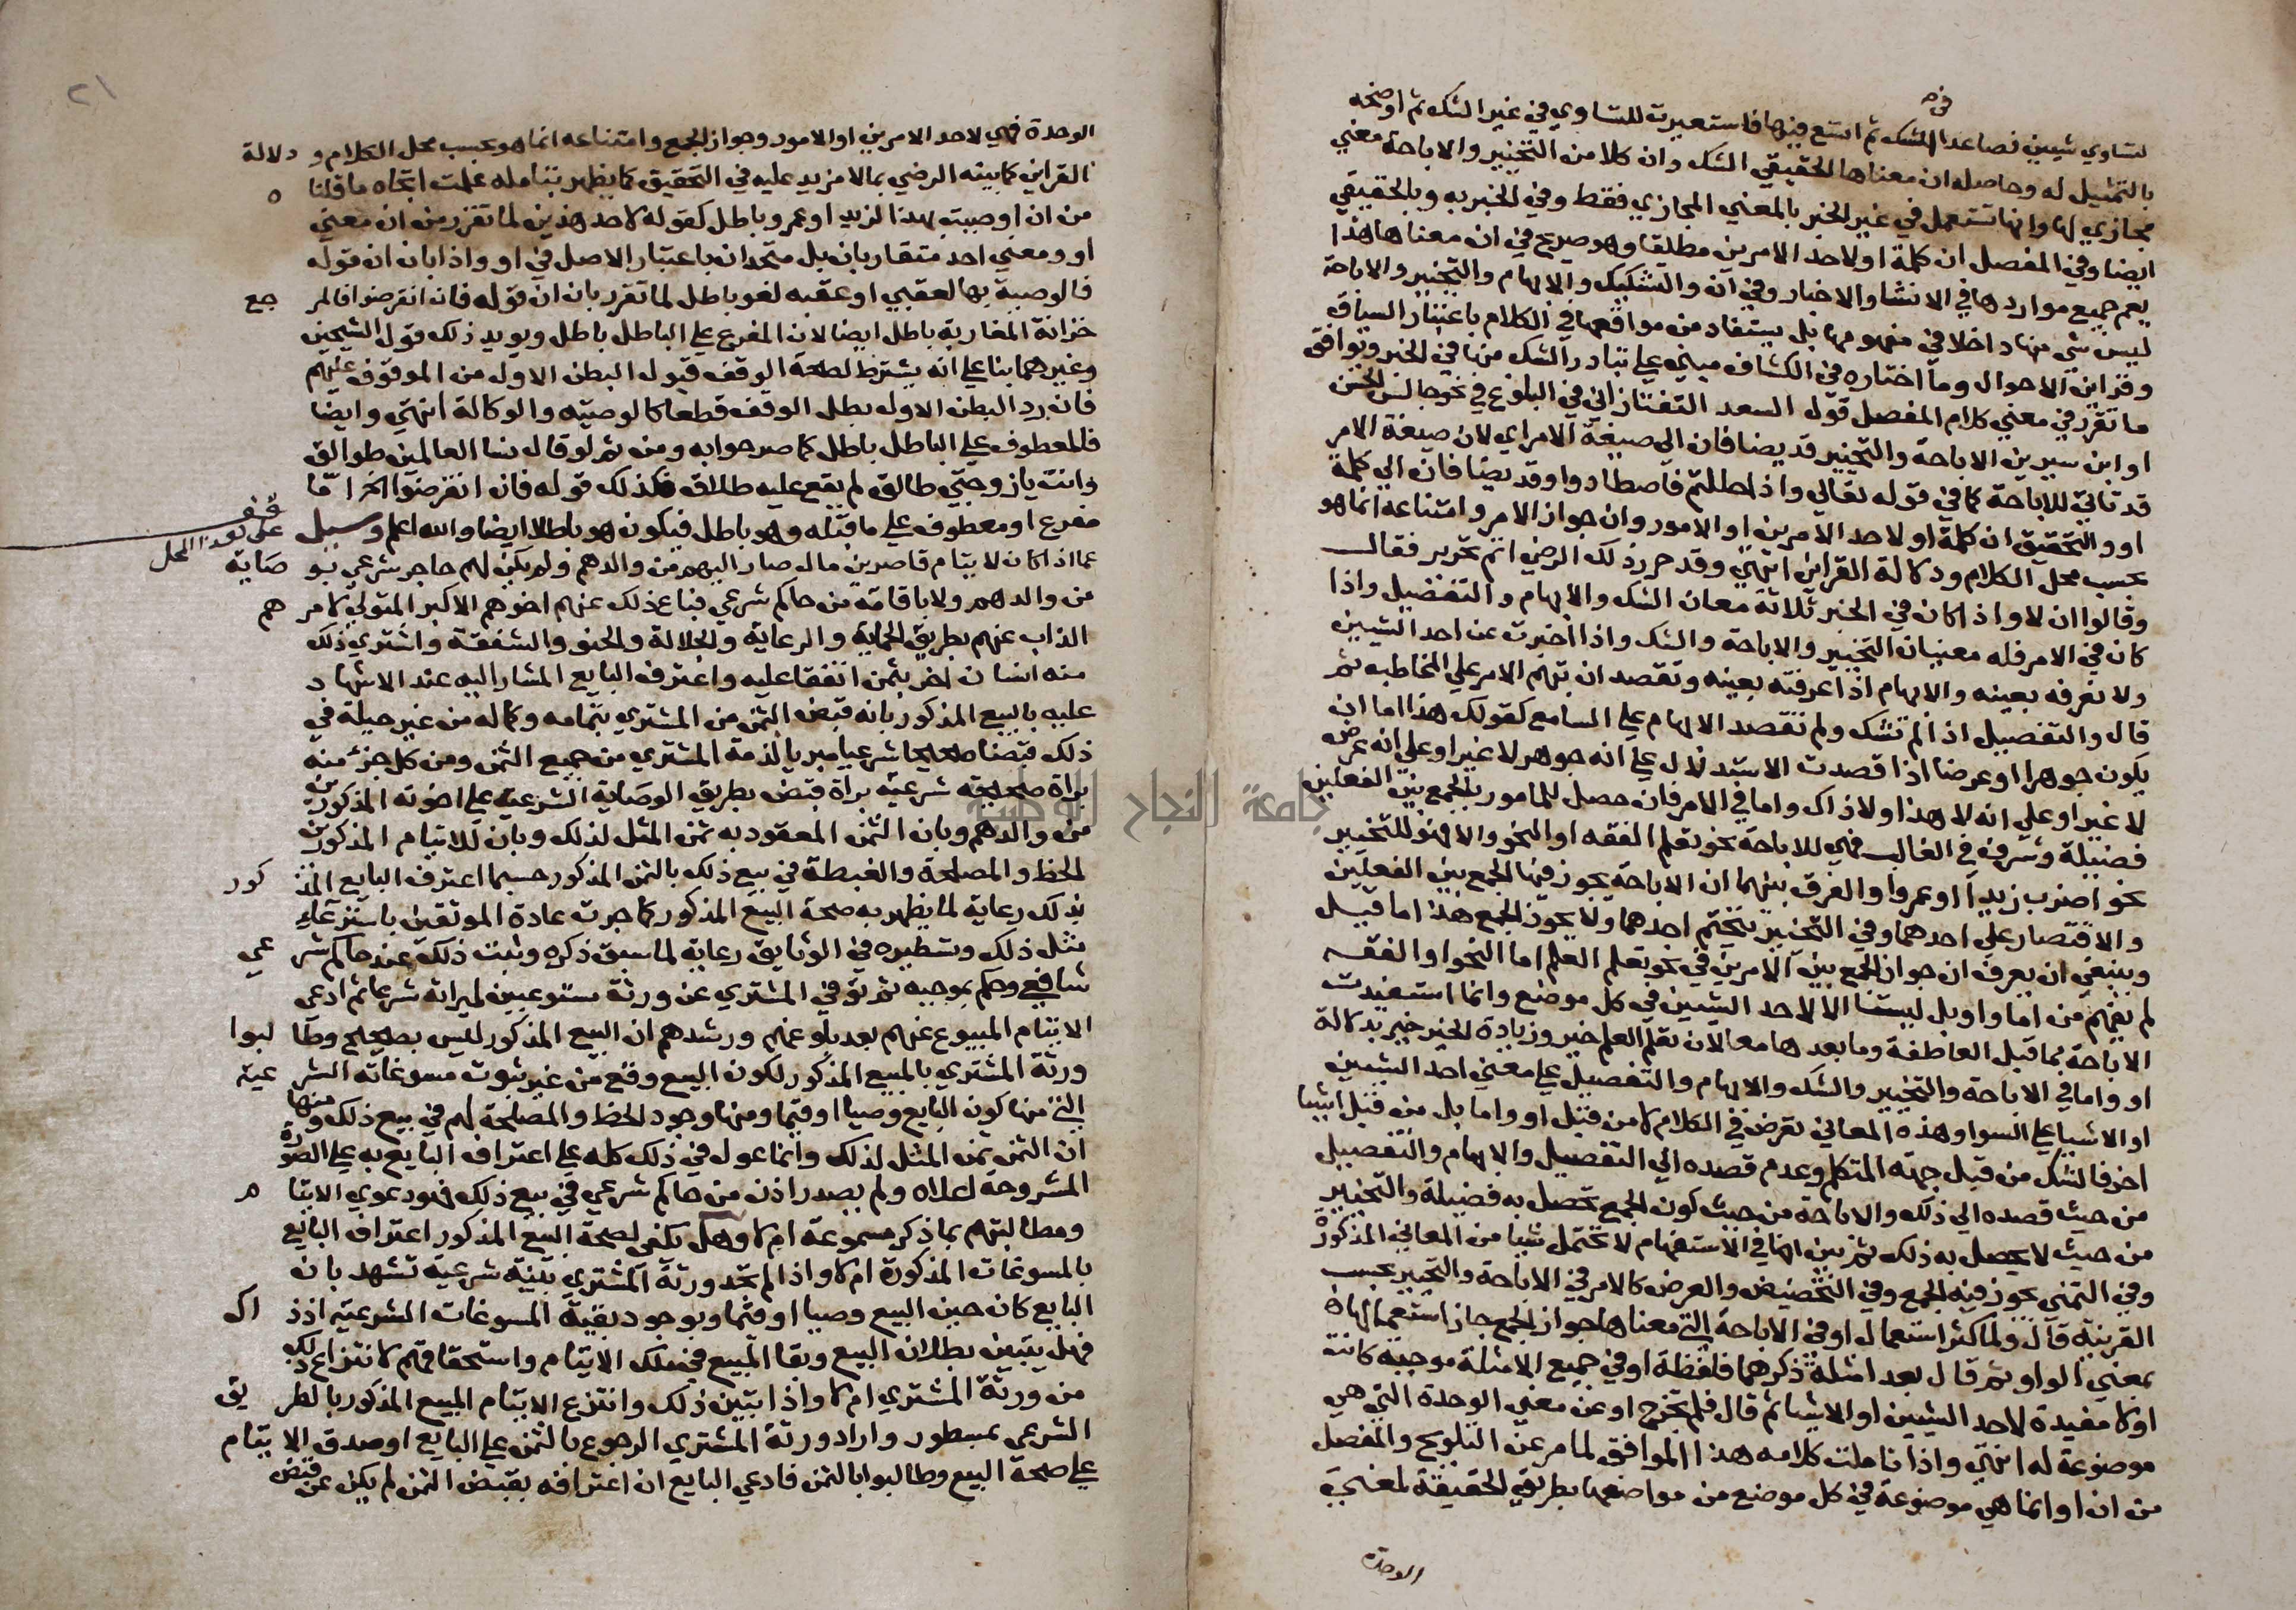 في
لتساوي شيين فصاعدا الشك ثم اتسع فيها فاستعيرت للتساوي في غير الشك ثم اوضحه
بالتمثيل له وحاصله ان معناها الحقيقي الشك وان كلا من التخيير والاباحة معني
مجازي لها وانها تستعمل في غير الخبر بالمعني المجازي فقط وفي الخبر به وبالحقيقي
ايضا وفي المفصل ان كلمة او لاحد الامرين مطلقا وهو صريح في ان معناها هذا
يعم جميع مواردها في الانشا والاخبار وفي ان والتشكيك والابهام والتخيير والاباحة
ليس شي منها داخلا في مفهومها بل يستفاد من مواقعها في الكلام باعتبار السياق
وقراين الاحوال وما اختاره في الكشاف مبني علي تبادر الشك منها في الخبر ويوافق
ما تقرر في معني كلام المفصل قول السعد التفتازاني في البلوغ في نحو جالس الحسن
او ابن سيرين الاباحة والتخيير قد يضافان الي صيغة الامر اي لان صيغة الامر
قد تاتي للاباحة كما في قوله تعالي واذا حللتم فاصطادوا وقد يضافان الي كلمة
او والتحقيق ان كلمة او لاحد الامرين او الامور وان جواز الامر وامتناعه انما هو
بحسب محل الكلام ودلالة القراين انتهي وقد حرر ذلك الرضي اتم تحرير فقال
وقالوا ان لاو اذا كان في الخبر ثلاثة معان الشك والابهام والتفضيل واذا
كان في الامر فله معنيان التخيير والاباحة والشك واذا اخبرت عن احد الشيين
ولا تعرفه بعينه والابهام اذا عرفته بعينه وتقصد ان تبهم الامر علي المخاطب ثم
قال والتفصيل اذا لم تشك ولم تقصد الابهام علي السامع كقولك هذا اما ان
يكون جوهرا او عرضا اذا قصدت الاستدلال علي انه جوهر لا غير او علي انه عرض
لا غير او علي انه لا هذا ولا ذاك واما في الامر فان حصل للمامور بالجمع بين الفعلين
فضيلة وشرف في الغالب فهي للاباحة نحو تعلم الفقه او النحو والا فهو للتخيير
نحو اضرب زيدا او عمروا والفرق بينهما ان الاباحة يجوز فيها الجمع بين الفعلين
والاقتصار علي احدهما وفي التخيير يتحتم احدهما ولا يجوز الجمع هذا ما قيل
وينبغي ان يعرف ان جواز الجمع بين الامرين في نحو تعلم العلم اما النحو او الفقه
لم يفهم من اما واو بل ليستا الا لاحد الشيين في كل موضع وانما استفيدت
الاباحة مما قبل العاطفة وما بعدها معا لان تعلم العلم خير وزيادة الخير خير بدلالة
او واما في الاباحة والتخيير والشك والابهام والتفصيل علي معني احد الشيين
او الاشيا علي السوا وهذه المعاني تعرض في الكلام لا من قبل او واما بل من قبل اشيا
اخر فالشك من قبل جهة المتكلم وعدم قصده الي التفصيل والابهام والتفصيل
من حيث قصده الي ذلك والاباحة من حيث كون الجمع تحصل به فضيلة والتخيير
من حيث لا يحصل به ذلك ثم بين انها في الاستفهام لا تحتمل شيا من المعاني المذكورة
وفي التمني يجوز فيه الجمع وفي التحضيض والعرض كالامر في الاباحة والتخيير بحسب
القرينة قال ولما كثر استعمال او في الاباحة التي معناها جواز الجمع جاز استعمالها
بمعني الواو ثم قال بعد امثلة ذكرهما فلفظة او في جميع الامثلة موجبة كانت
او لا مفيدة لاحد الشيين او الاشيا ثم قال فلم تخرج او عن معني الوحدة التي هي
موضوعة له انتهي واذا تاملت كلامه هذا الموافق لما مر عن التلويح والمفصل
من ان او انما هي موضوعة في كل موضع من مواضعها بطريق الحقيقة لمعني
الوحدة
٢١
الوحدة فهي لاحد الامرين او الامور وجواز الجمع وامتناعه انما هو بحسب محل الكلام ودلالة
القراين كما بينه الرضي بما لا مزيد عليه في التحقيق كما يظهر بتامله علمت اتجاه ما قلنا ه
من ان اوصيت بهذا لزيد او عمرو باطل كقوله لاحد هذين لما تقرر من ان معني
او ومعني احد متقاربان بل متحدان باعتبار الاصل في او واذا بان ان قوله
فالوصية بها لعقبي او عقبه لغو باطل لما تقرر بان ان قوله فان انقرضوا فالمرجع
خزانة المغاربة باطل ايضا لان المفرع علي الباطل باطل ويويد ذلك قول الشيخين
وغيرهما بنا علي انه يشترط لصحة الوقف قبول البطن الاول من الموقوف عليهم
فان رد البطن الاول بطل الوقف قطعا كالوصية والوكالة انتهي وايضا
فالمعطوف علي الباطل باطل كما صرحوا به ومن ثم لو قال نسا العالمين طوالق
وانت يا زوجتي طالق لم يقع عليه طلاق فكذلك قوله فان انقرضوا الخ اما
مفرع او معطوف علي ما قبله وهو باطل فيكون هو باطلا ايضا والله اعلم وسيل
قف على هذا المحل
عما اذا كان لايتام قاصرين مال صار اليهم من والدهم ولم يكن لهم حاجر شرعي بوصاية
من والدهم ولا باقامة من حاكم شرعي فباع ذلك عنهم اخوهم الاكبر المتولي لامرهم
الذاب عنهم بطريق الحماية والرعاية والجلالة والحنو والشفقة واشتري ذلك
منه انسان اخر بثمن اتفقا عليه واعترف البايع المشار اليه عند الاشهاد
عليه بالبيع المذكور بانه قبض الثمن من المشتري بتمامه وكماله من غير حيلة في
ذلك قبضا صحيحا شرعيا مبريا لذمة المشتري من جميع الثمن ومن كل جزء منه
براة صحيحة شرعية براة قبض بطريق الوصاية الشرعية علي اخوته المذكورين
من والدهم وبان الثمن المعقود به ثمن المثل لذلك وبان للايتام المذكورين
الحظ والمصلحة والغبطة في بيع ذلك بالثمن المذكور حسبما اعترف البايع المذكور
بذلك رعاية لما يظهر به صحة البيع المذكور كما جرت عادة الموثقين باسترعاء
مثل ذلك وتسطيره في الوثايق رعاية لما سبق ذكره وثبت ذلك عند حاكم شرعي
شافعي وحكم بموجبه ثم توفي المشتري عن ورثة مستوعبين لميراثه شرعا ثم ادعي
الايتام المبيوع عنهم بعد بلوغهم ورشدهم ان البيع المذكور ليس بصحيح وطالبوا
ورثة المشتري بالمبيع المذكور لكون البيع وقع من غير ثبوت مسوغاته الشرعية
التي منها كون البايع وصيا او قيما ومنها وجود الحظ والمصلحة لهم في بيع ذلك ومنها
ان الثمن ثمن المثل لذلك وانما عول في ذلك كله علي اعتراف البايع به علي الصورة
المشروحة اعلاه ولم يصدر اذن من حاكم شرعي في بيع ذلك فهل دعوي الايتام
ومطالبتهم بما ذكر مسموعة ام لا وهل يكفي لصحة البيع المذكور اعتراف البايع
بالمسوغات المذكورة ام لا واذا لم تجد ورثة المشتري بينة شرعية تشهد بان
البايع كان حين البيع وصيا او قيما وبوجود بقية المسوغات الشرعية اذ ذاك
فهل يتبين بطلان البيع وبقا المبيع في ملك الايتام واستحقاقهم لانتزاع ذلك
من ورثة المشتري ام لا واذا تبين ذلك وانتزع الايتام المبيع المذكور بالطريق
الشرعي بمسطور واراد ورثة المشتري الرجوع بالثمن علي البايع او صدق الايتام
علي صحة البيع وطالبوا بالثمن فادعي البايع ان اعترافه بقبض الثمن لم يكن عن قبض
جامعة النجاح الوطنية